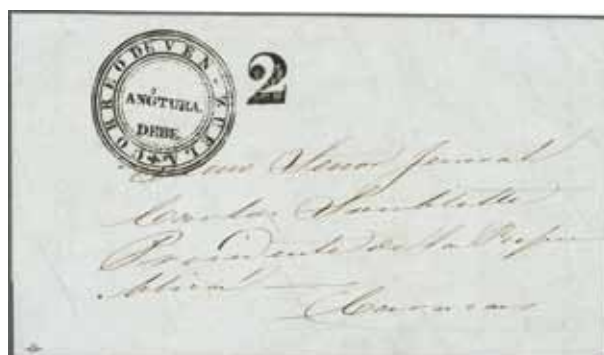 CORREO DE VENEZUELA
ANGTURA.
DEBE
2
Señor General
Carlos Soublette
Presidente de la Repu
blica
Caracas